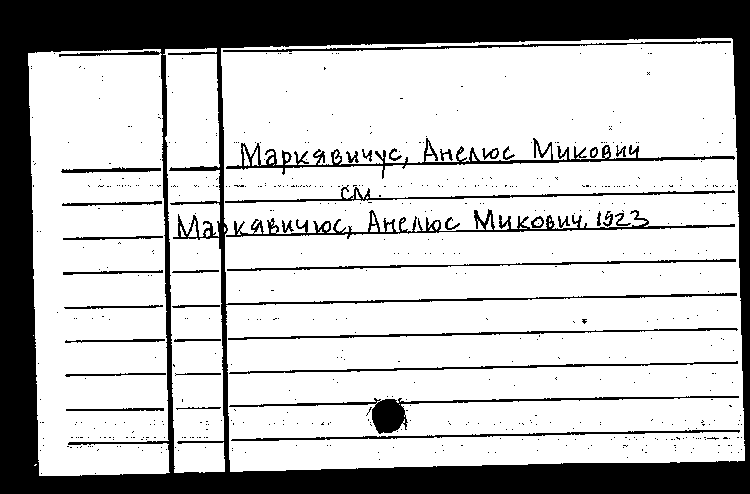 Маркявичус, Анелюс Микович
см.
Маркявичюс, Анелюс Микович, 1923